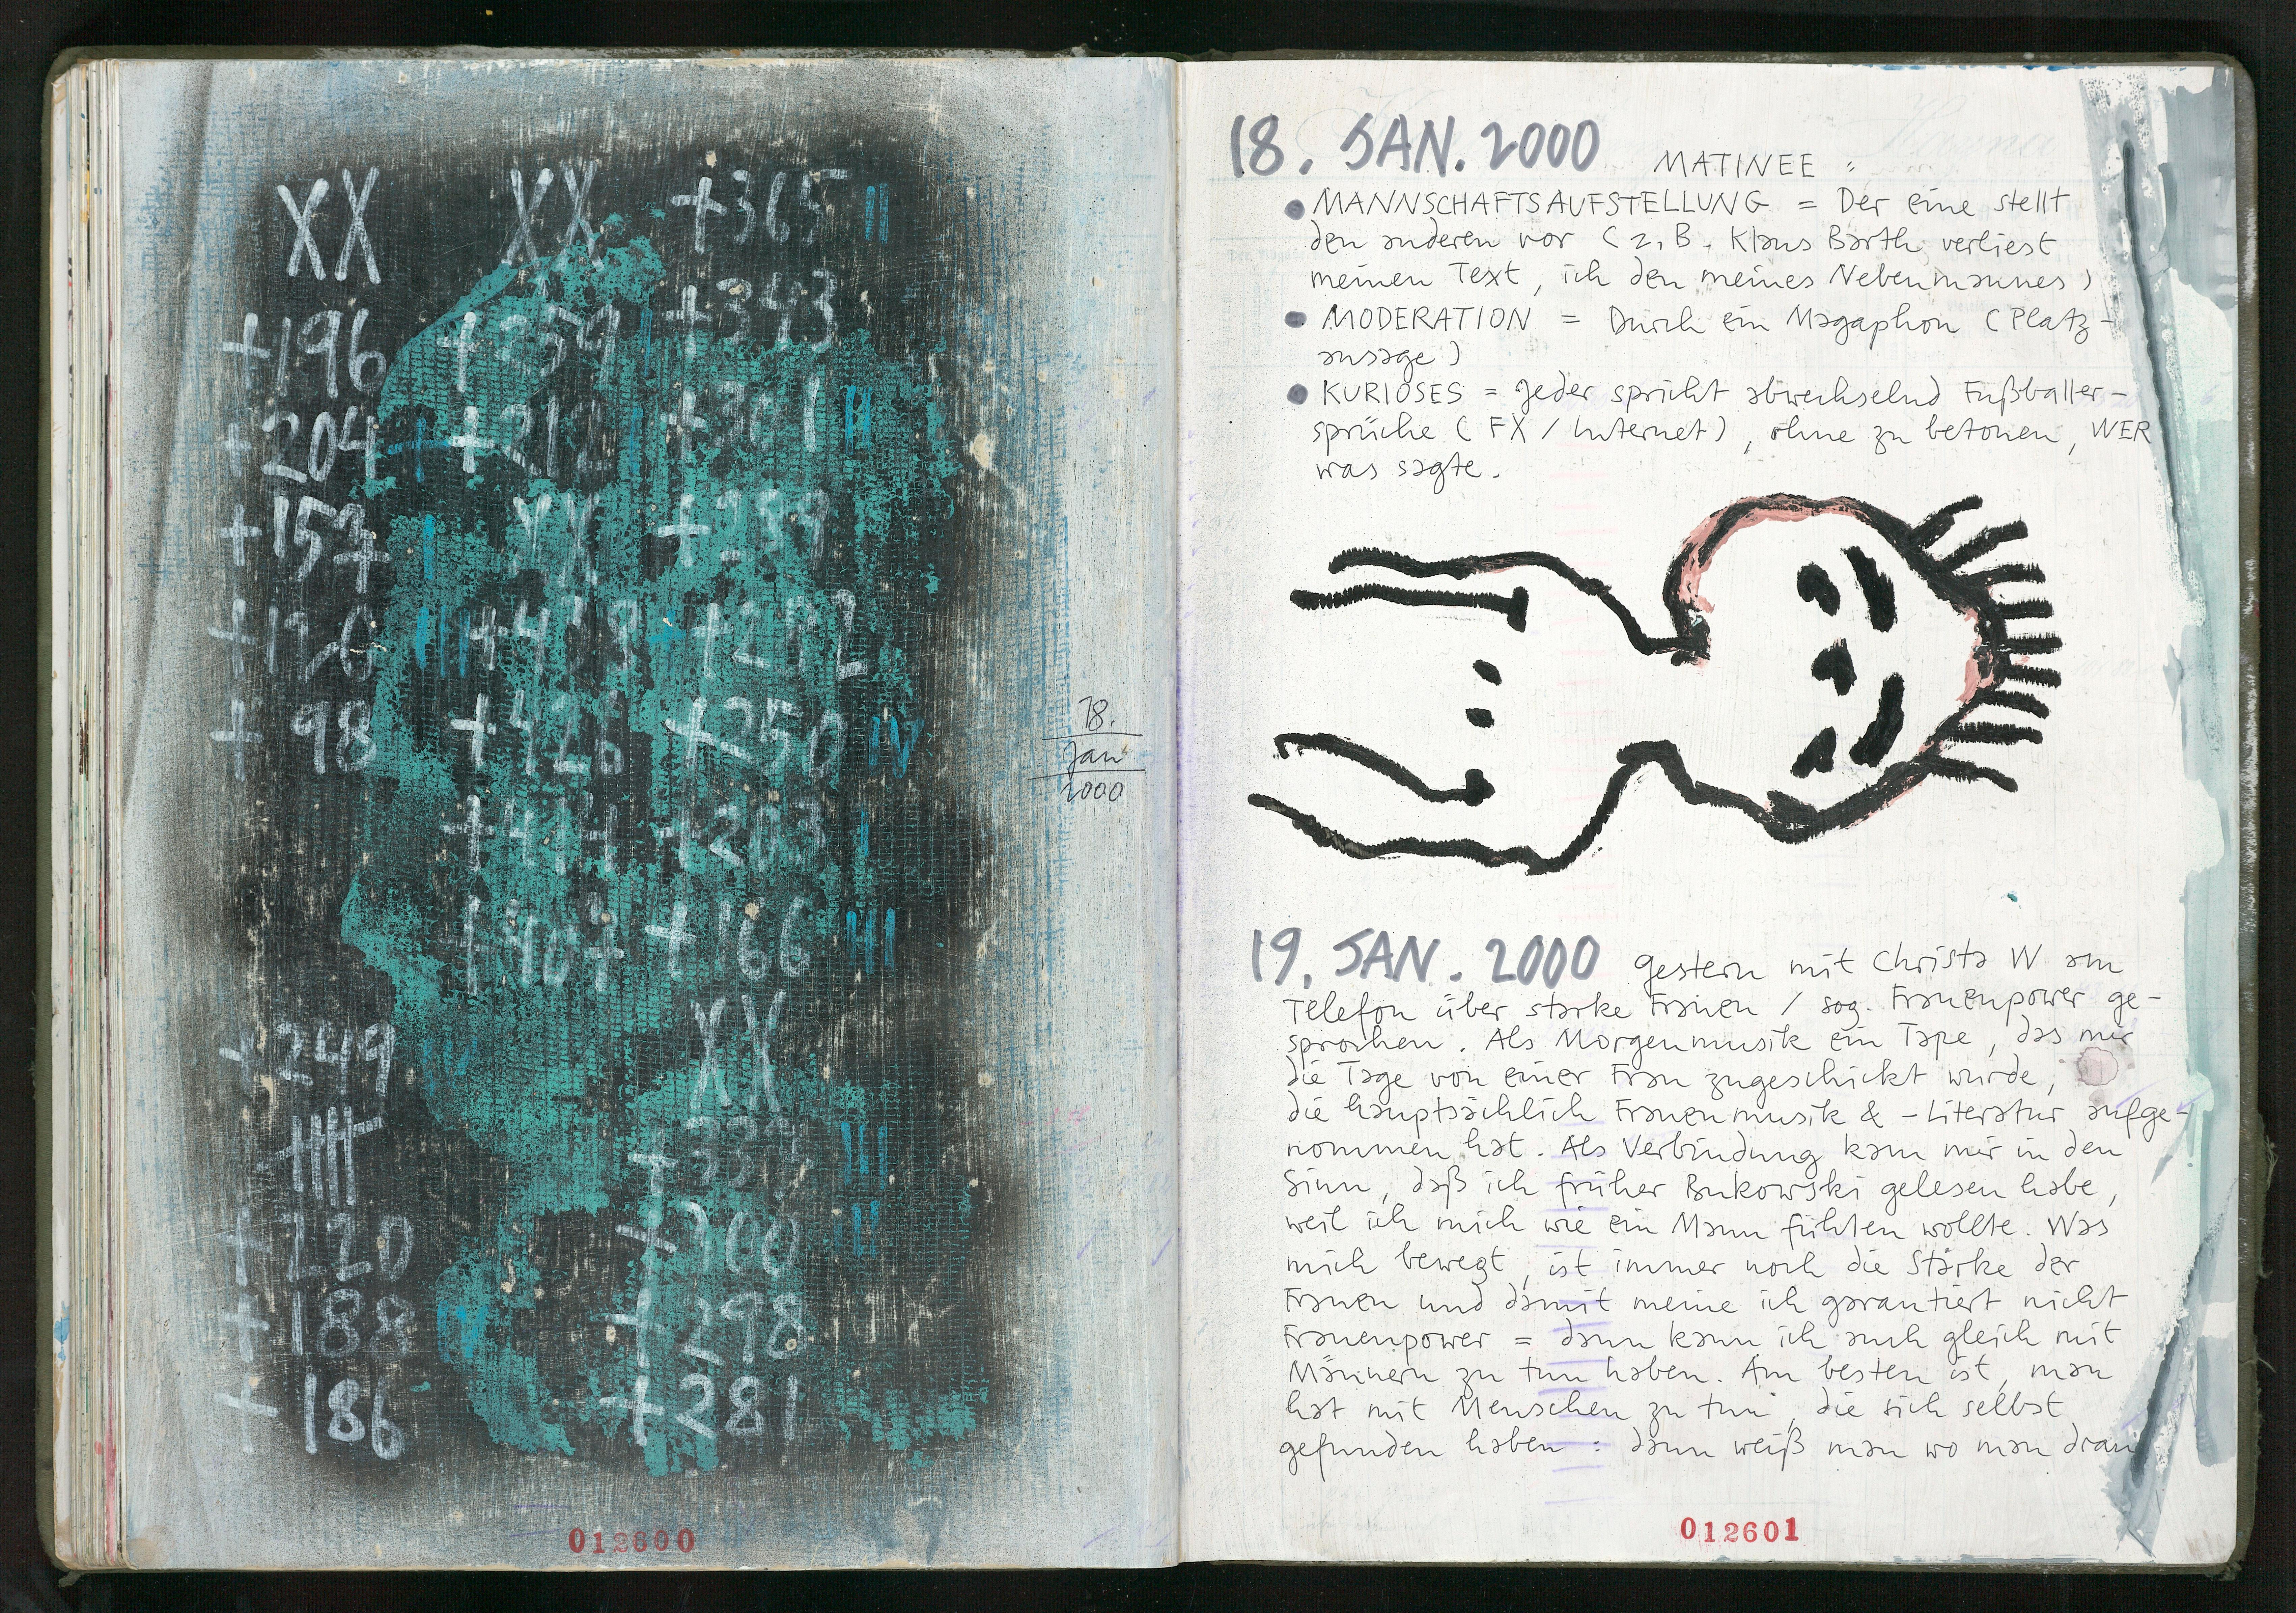 XX XX +365 II
+343
+196 +259 I
+204 I +212 +301 II
+157 I XX +299
+126 III +292
+98 +426 +250 IV
+203 I
+166 III
XX
+249 IV
+220 +300 II
+188 V +298
+186 +281
18.
Jan
2000
012600
18. JAN. 2000 MATINEE :
• MANNSCHAFTSAUFSTELLUNG = Der eine stellt
den anderen vor (z.B. Klaus Barth verliest
meinen Text, ich den meines Nebenmannes)
• MODERATION = Durch ein Magaphon (Platz-
ansage)
• KURIOSES = Jeder spricht abwechselnd Fußballer-
sprüche (FX / Internet), ohne zu betonen, WER
was sagte.
19. JAN. 2000 Gestern mit Christa W am
Telefon über starke Frauen / sog. Frauenpower ge-
sprochen. Als Morgenmusik ein Tape, das mir
die Tage von einer Frau zugeschickt wurde,
die hauptsächlich Frauenmusik & -Literatur aufge-
nommen hat. Als Verbindung kam mir in den
Sinn, daß ich früher Bukowski gelesen habe,
weil ich mich wie ein Mann fühlen wollte. Was
mich bewegt, ist immer noch die Stärke der
Frauen und damit meine ich garantiert nicht
Frauenpower = dann kann ich auch gleich mit
Männern zu tun haben. Am besten ist, man
hat mit Menschen zu tun, die sich selbst
gefunden haben : dann weiß man wo man dran
012601